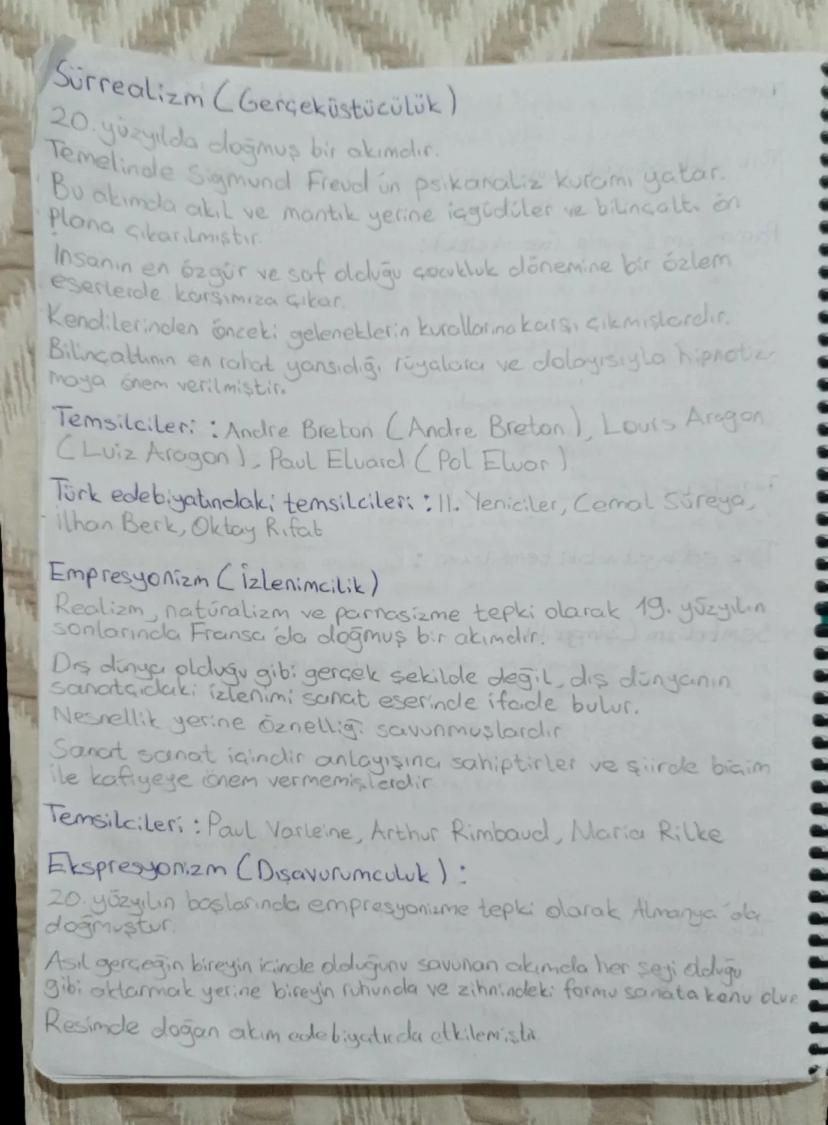 Sürrealizm (Gerçeküstücülük)
20. yüzyılda doğmuş bir akımdır.
Temelinde Sigmund Freud'ün psikanaliz kuramı yatar.
Bu akımda akıl ve mantık yerine içgüdüler ve bilinçaltı ön
plana çıkarılmıştır.
İnsanın en özgür ve saf olduğu çocukluk dönemine bir özlem
eserlerde karşımıza çıkar.
Kendilerinden önceki geleneklerin kurallarına karşı çıkmışlardır.
Bilinçaltının en rahat yansıdığı rüyalara ve dolayısıyla hipnotiz
maya önem verilmiştir.
Temsilcileri : Andre Breton (Andre Breton), Louis Aragon
(Luiz Aragon), Paul Eluard (Pol Elvar)
Türk edebiyatındaki temsilcileri : II. Yeniciler, Cemal Süreya,
İlhan Berk, Oktay Rıfat
Empresyonizm (İzlenimcilik)
Realizm, natüralizm ve parnasizme tepki olarak 19. yüzyılın
sonlarında Fransa'da doğmuş bir akımdır.
Dış dünya olduğu gibi gerçek şekilde değil, dış dünyanın
sanatçıdaki izlenimi sanat eserinde ifade bulur.
Nesnellik yerine öznelliği savunmuşlardır
Sanat sanat içindir anlayışına sahiptirler ve şiirde biçim
ile kafiyeye önem vermemişlerdir.
Temsilcileri : Paul Varleine, Arthur Rimbaud, Maria Rilke
Ekspresyonizm (Dışavurumculuk) :
20. yüzyılın başlarında empresyonizme tepki olarak Almanya'da
doğmuştur.
Asıl gerçeğin bireyin içinde olduğunu savunan akımda her şeyi olduğu
gibi aktarmak yerine bireyin ruhunda ve zihnindeki formu sanata konu olur
Resimde doğan akım edebiyatıda etkilemiştir